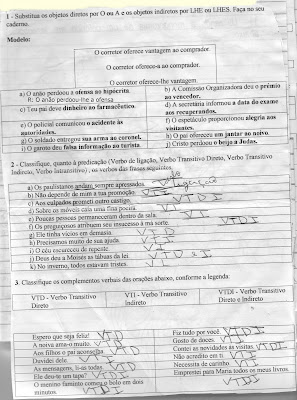 1 - Substitua os objetos diretos por O ou A e os objetos indiretos por LHE ou LHES. Faça no seu
caderno.
Modelo:
O corretor oferece vantagem ao comprador.
O corretor oferece-a ao comprador.
O corretor oferece-lhe vantagem.
a) O anão perdoou a ofensa ao hipócrita.
R: O anão perdoou-lhe a ofensa
b) A Comissão Organizadora deu o prêmio
ao vencedor.
c) Teu pai deve dinheiro ao farmacêutico.
d) A secretária informou a data do exame
aos recuperandos.
e) O policial comunicou o acidente às
autoridades.
f) O espetáculo proporcionou alegria aos
visitantes.
g) O soldado entregou sua arma ao coronel.
h) O pai ofereceu um jantar ao noivo.
i) O garoto deu falsa informação ao turista.
j) Cristo perdoou o beijo a Judas.
2 - Classifique, quanto à predicação (Verbo de ligação, Verbo Transitivo Direto, Verbo Transitivo
Indireto, Verbo intransitivo), os verbos das frases seguintes.
a) Os paulistanos andam sempre apressados.
b) Não depende de mim a tua promoção.
c) Aos culpados prometi outro castigo. VTDI
d) Sobre os móveis caía uma fina poeira. VI
e) Poucas pessoas permaneceram dentro da sala.
f) Os preguiçosos atribuem seu insucesso à má sorte. VTDI
g) Ele tinha vícios em demasia. VTD
h) Precisamos muito de sua ajuda.
i) O céu escureceu de repente. VI
j) Deus deu a Moisés as tábuas da lei
k) No inverno, todos estavam tristes.
3. Classifique os complementos verbais das orações abaixo, conforme a legenda:
VTD - Verbo Transitivo
Direto
VTI - Verbo Transitivo
Indireto
VTDI - Verbo Transitivo
Direto e Indireto
Espero que seja feliz! VTD
Fiz tudo por você. VTDI
A noiva ama-o muito. VTD
Gosto de doces. VTI
Aos filhos o pai aconselha.
Contei as novidades às visitas. VTDI
Duvidei dele. VTI
Não acredito em ti. VTI
As mensagens, li-as todas. VTD
Necessita de carinho. VTI
Ele deu-te um tapa? VTDI
Emprestei para Maria todos os meus livros.
VTDI
O menino faminto comeu o bolo em dois
minutos. VTD